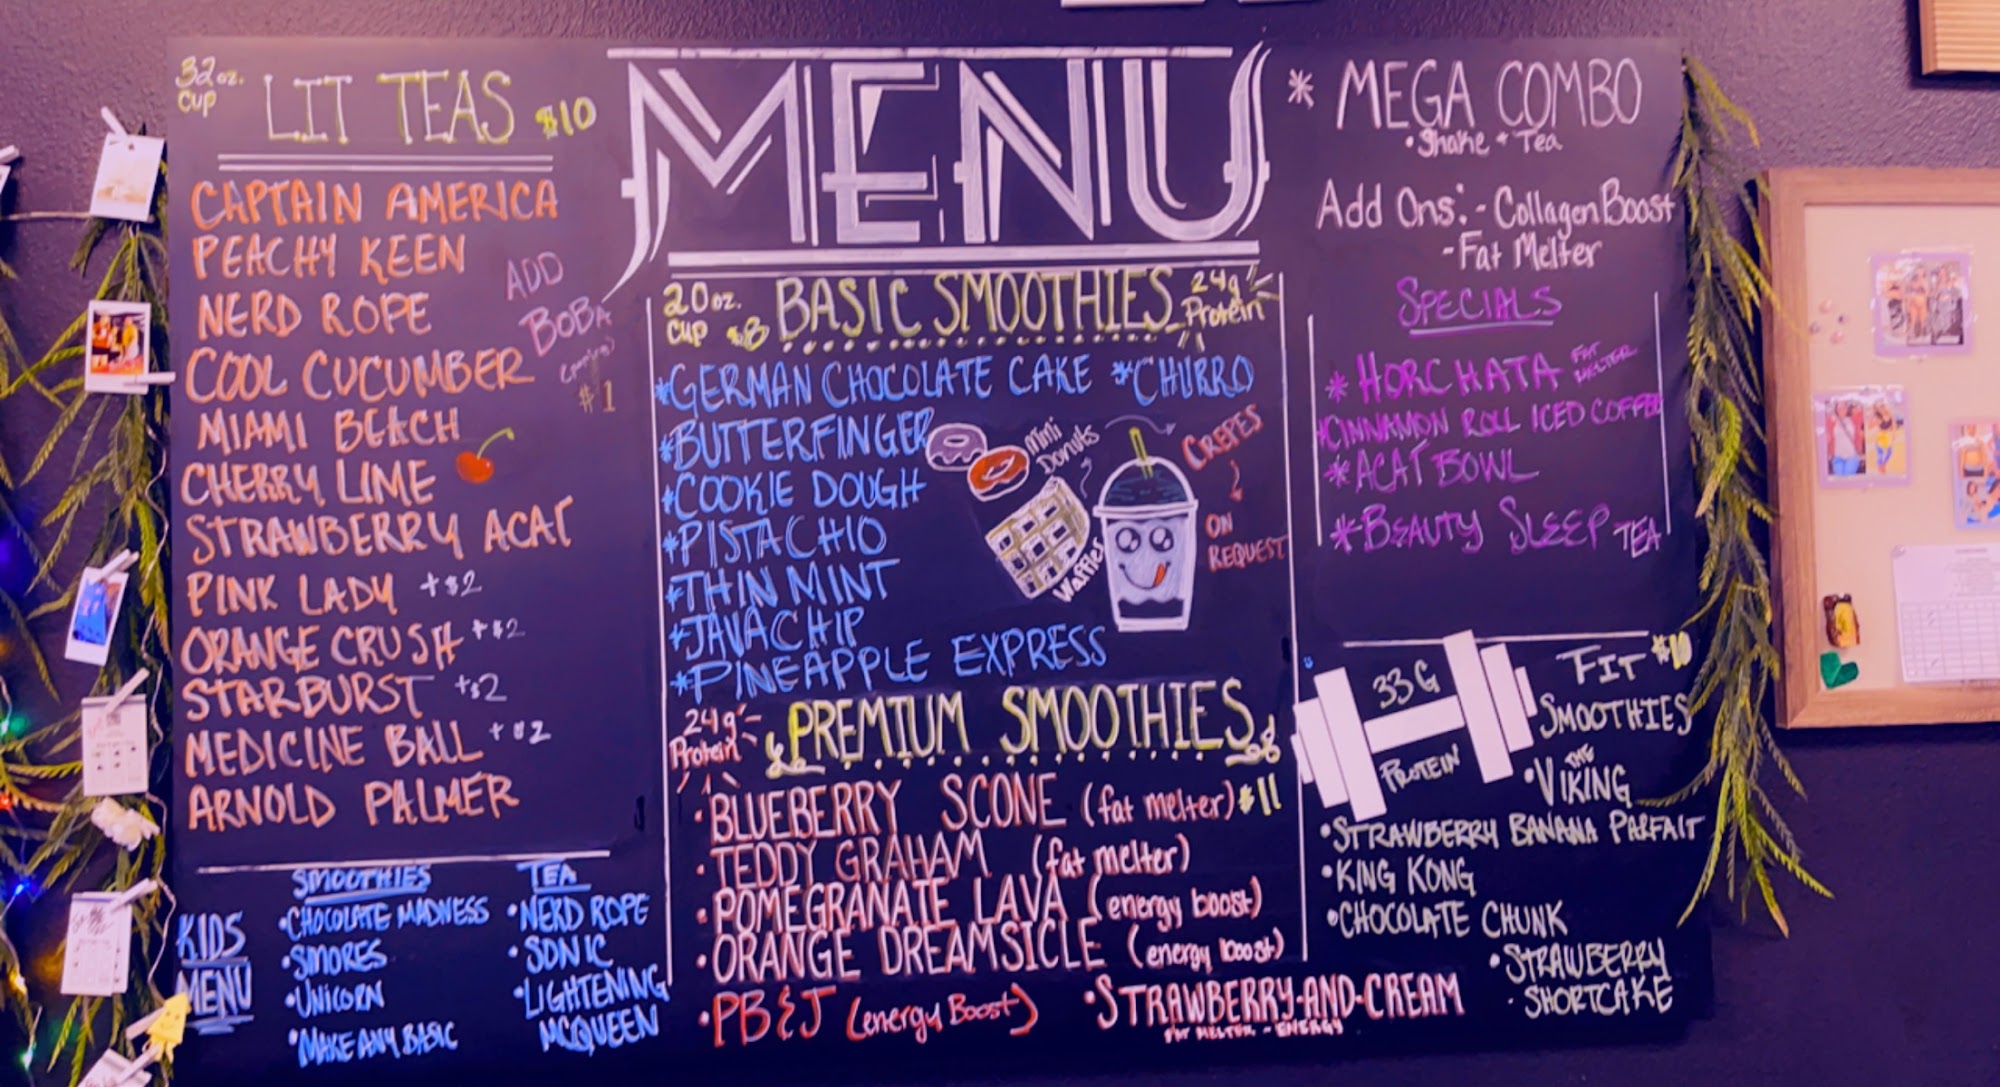 32oz.
Cup
LIT TEAS $10
CAPTAIN AMERICA
PEACHY KEEN
NERD ROPE
COOL CUCUMBER
MIAMI BEACH
CHERRY LIME
STRAWBERRY ACAI
PINK LADY +$2
ORANGE CRUSH +$2
STARBURST +$2
MEDICINE BALL +$2
ARNOLD PALMER
ADD
BOBA
$1
KIDS
MENU
SMOOTHIES
•CHOCOLATE MADNESS
•SMORES
•UNICORN
•MAKE ANY BASIC
TEA
•NERD ROPE
•SONIC
•LIGHTENING
MCQUEEN
MENU
20oz.
Cup $8
BASIC SMOOTHIES
24g
Protein
*GERMAN CHOCOLATE CAKE *CHURRO
*BUTTERFINGER
*COOKIE DOUGH
*PISTACHIO
*THIN MINT
*JAVA CHIP
*PINEAPPLE EXPRESS
Mini
Donuts
Waffles
CREPES
ON
REQUEST
24g
Protein
PREMIUM SMOOTHIES
•BLUEBERRY SCONE (fat melter) $11
•TEDDY GRAHAM (fat melter)
•POMEGRANATE LAVA (energy boost)
•ORANGE DREAMSICLE (energy boost)
•PB&J (energy Boost)
•STRAWBERRY-AND-CREAM
FAT MELTER - ENERGY
* MEGA COMBO
•Shake + Tea
Add Ons: - Collagen Boost
- Fat Melter
SPECIALS
* HORCHATA FAT
MELTER
*CINNAMON ROLL ICED COFFEE
*ACAI BOWL
*BEAUTY SLEEP TEA
33G
PROTEIN
FIT $10
SMOOTHIES
•THE VIKING
•STRAWBERRY BANANA PARFAIT
•KING KONG
•CHOCOLATE CHUNK
•STRAWBERRY
SHORTCAKE